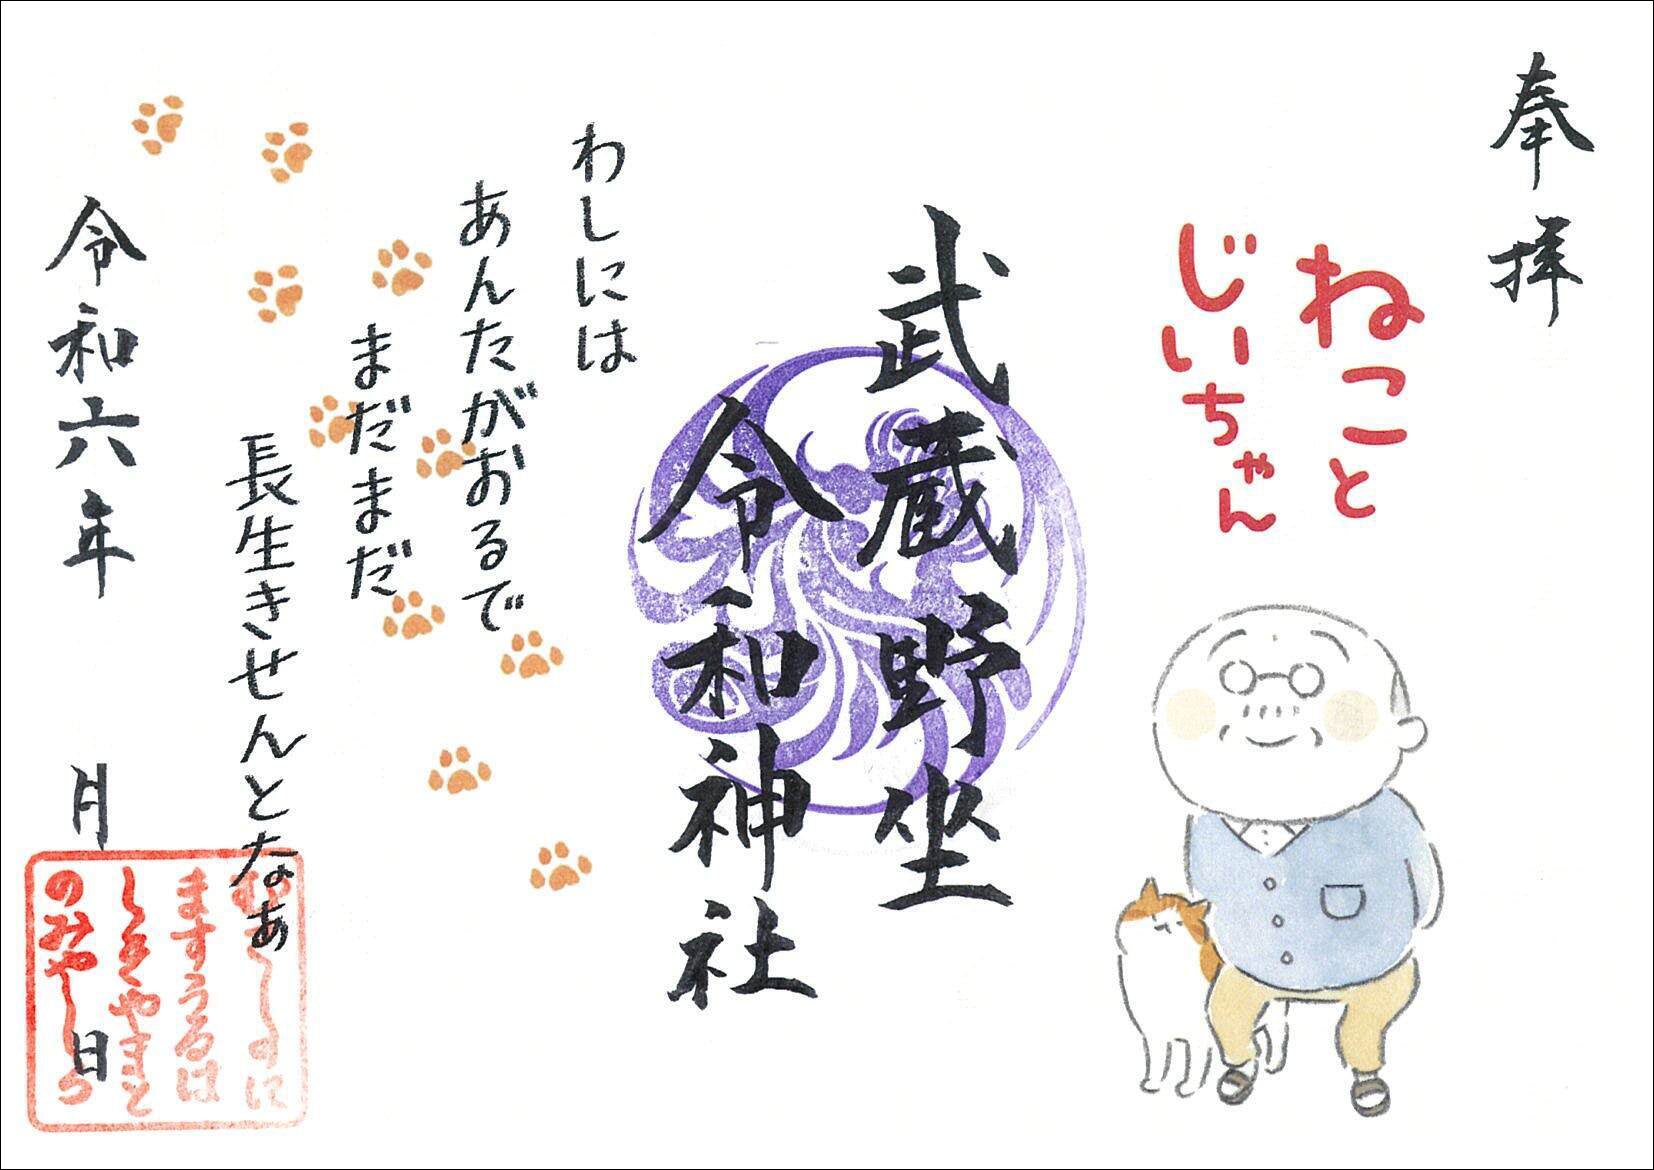 奉拝
ねこと
じいちゃん
武蔵野坐
令和神社
わしには
あんたがおるで
まだまだ
長生きせんとなあ
令和六年 月 日
むさしのに
ますうるは
しきやまと
のみやしろ